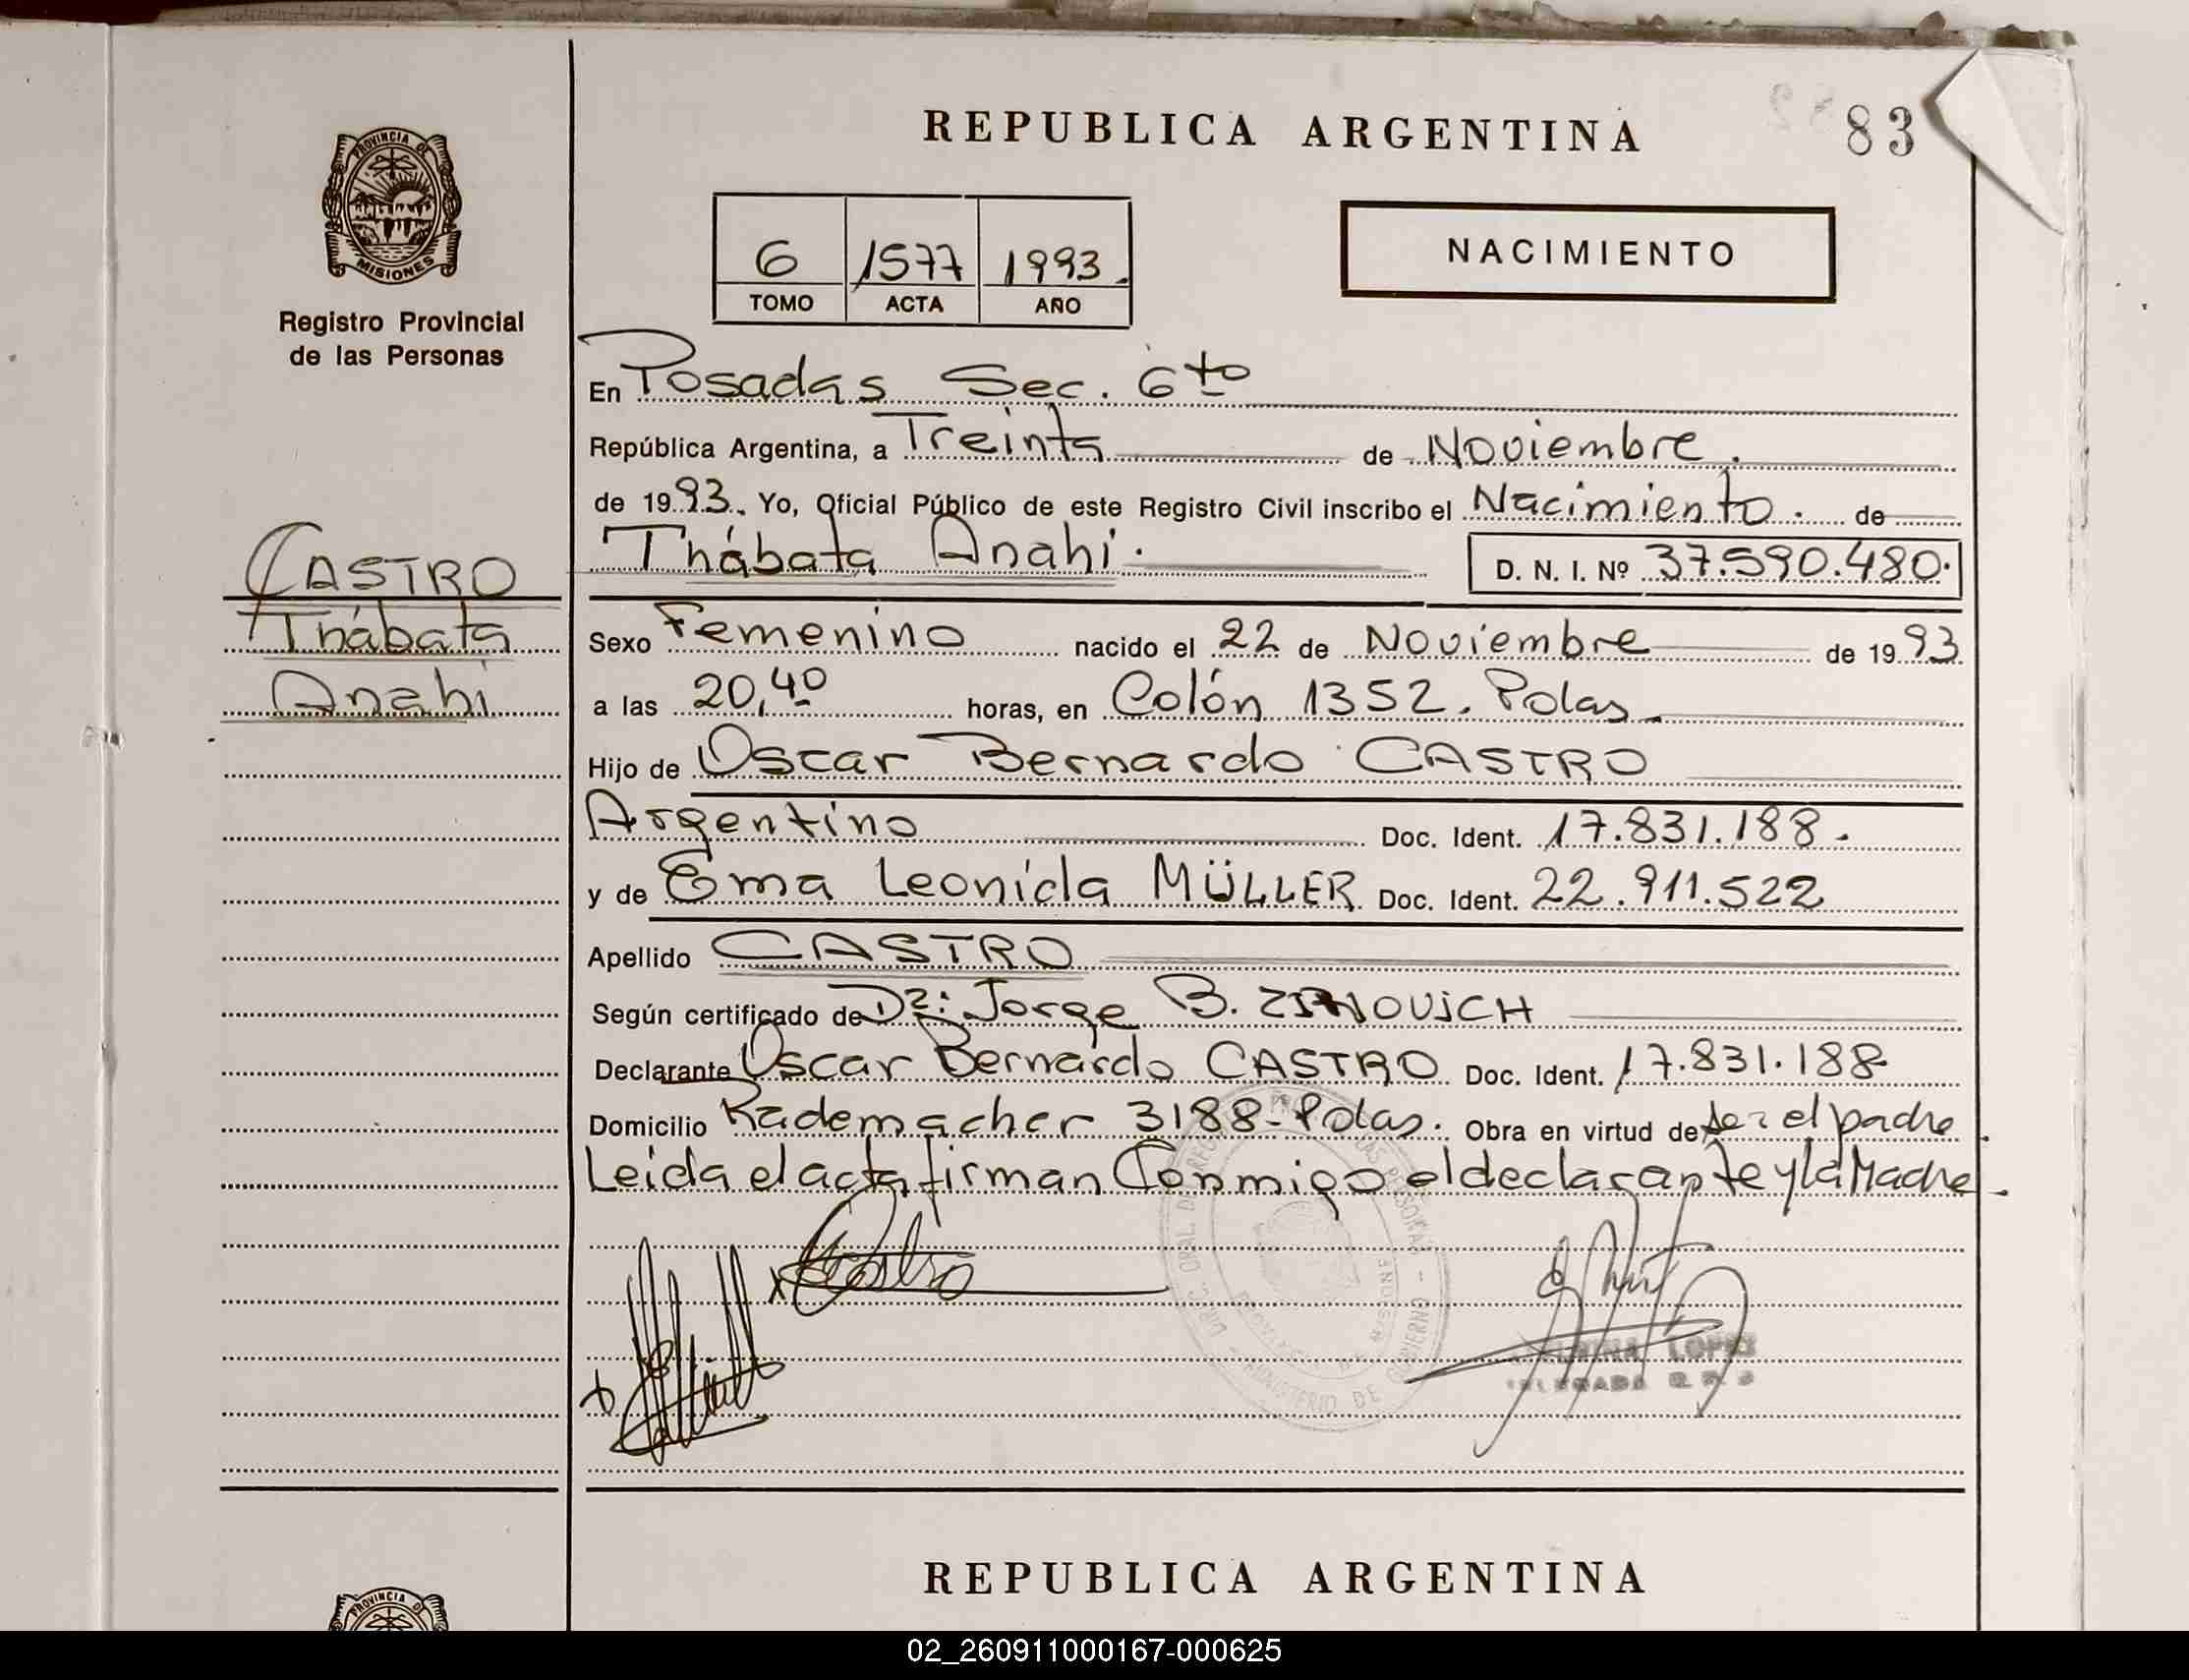 REPUBLICA ARGENTINA
83
PROVINCIA DE
MISIONES
Registro Provincial
de las Personas
6 1577 1993.
TOMO ACTA AÑO
NACIMIENTO
En Posadas Sec. 6to
República Argentina, a Treinta de Noviembre.
de 1993. Yo, Oficial Público de este Registro Civil inscribo el Nacimiento. de
Thábata Anahi.
D. N. I. Nº 37.590.480.
CASTRO
Thábata
Anahi
Sexo Femenino nacido el 22 de Noviembre de 1993
a las 20,40 horas, en Colón 1352. Pdas
Hijo de Oscar Bernardo CASTRO
Argentino Doc. Ident. 17.831.188.
y de Ema Leonida MÜLLER Doc. Ident. 22.911.522
Apellido CASTRO
Según certificado de Dr: Jorge B.
Declarante Oscar Bernardo CASTRO Doc. Ident. 17.831.188
Domicilio Rademacher 3188-Pdas. Obra en virtud de ser el padre
Leida el acta firman Conmigo el declarante y la Madre
LOPEZ
REPUBLICA ARGENTINA
PROVINCIA D
02_260911000167-000625